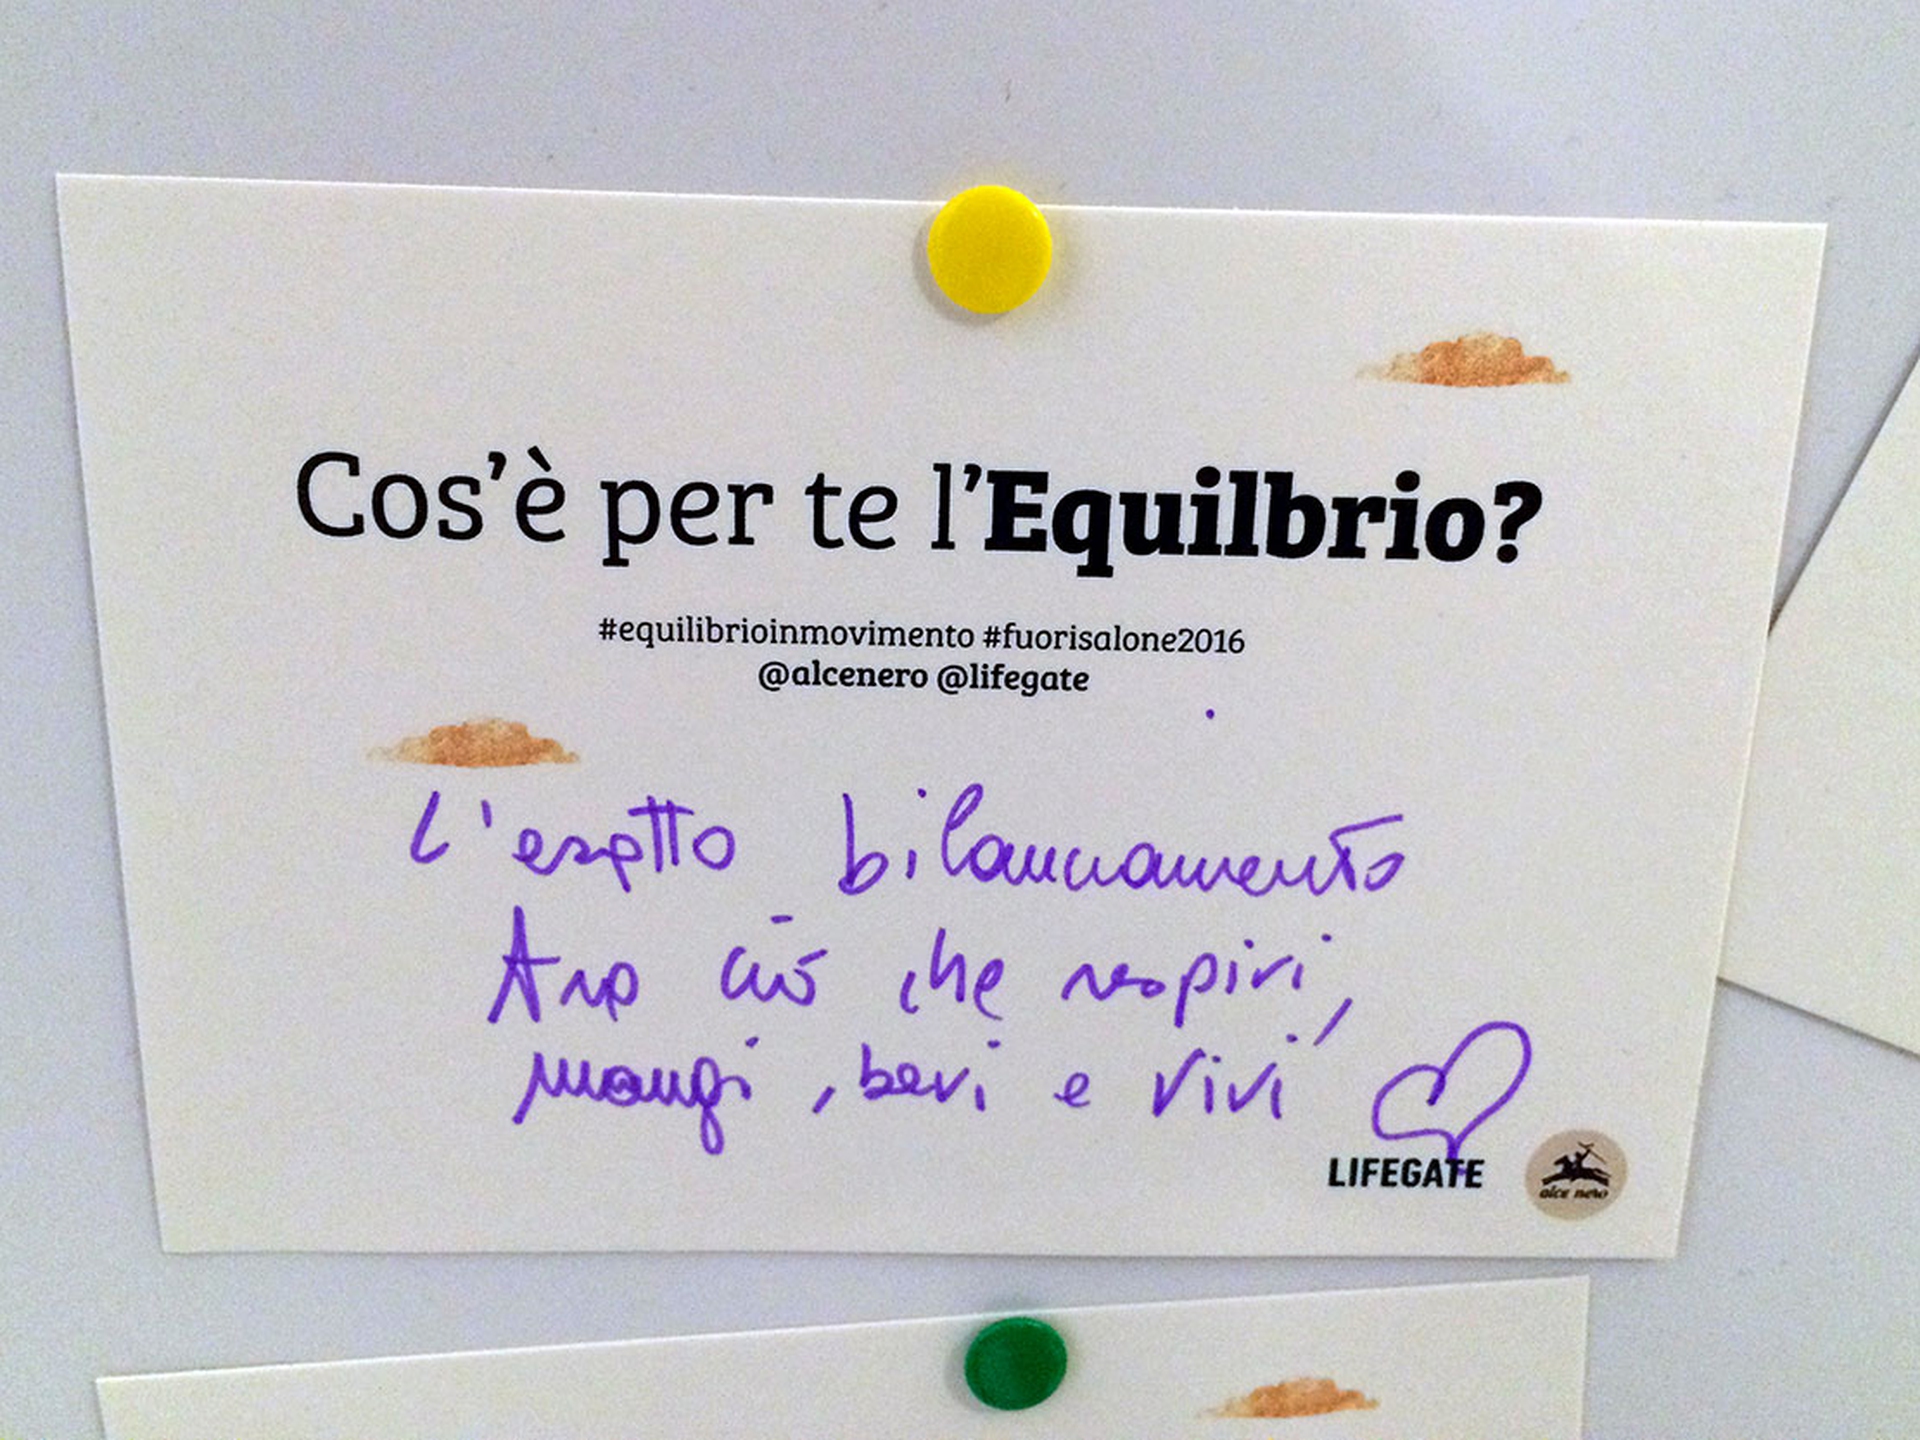 Cos'è per te l'Equilbrio?
#equilibrioinmovimento #fuorisalone2016
@alcenero @lifegate
L'esatto bilanciamento
tra ciò che respiri,
mangi, bevi e vivi
LIFEGATE
alce nero